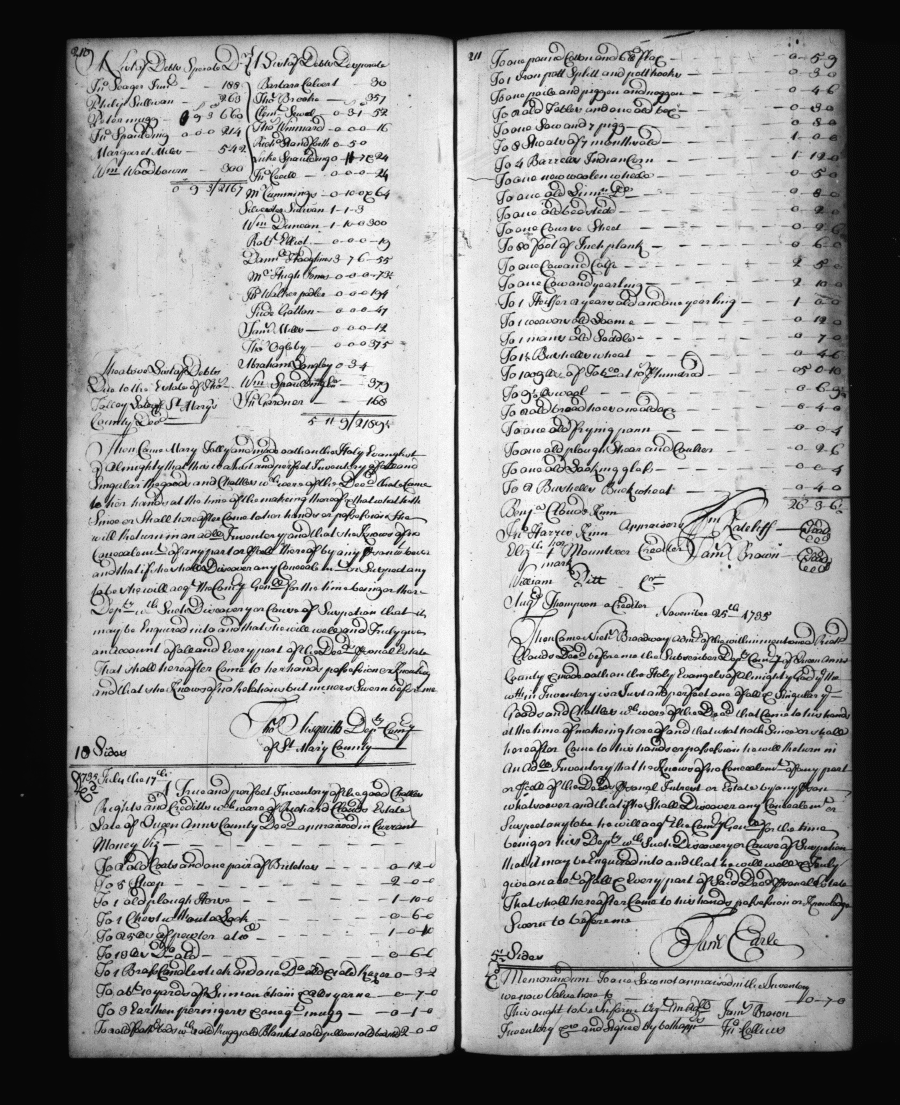 210
A List of Debts Sperate
Jno Seager Junr — 188
Philip Sullivan — 263
Peter mugg 0 9 3 660
Jno Spaulding 0-0-0 214
Margaret Miles — 542
Wm Woodburn — 300
0 9 3/2167
A List of Debts Desperate
Barbara Calvert — 30
Thos Brooke — 357
Clemt Sewal — 0-3-1-52
Thos Winnard — 0-0-0-16
Richd Standforth 0-5-0
Luke Spaulding
Jno Cecell — 0-0-0-24
Mc Cummings — 0-10-0 x 64
Silvester Sulivan 1-1-3
Wm Duncan — 1-10-0 300
Robt Elliot — 0-0-0-19
3-7 6-55
Mc Hugh Jones 0-0-0-734
Jno Walker pedler 0-0-0-194
Jude Gatton — 0-0-0-41
Miles — 0-0-0-12
Thos Ogleby — 0-0-0 375
Abraham Langley 0-3-4
Wm Spaulding — 379
Jno Gardner — 168
The above List of Debts
Due to the Estate of Thos
Tolley Late of St Marys
County Decd
Then Came Mary Tolly and made oath on the Holy Evangelist
of Almighty that this is a Just and perfect Inventory of all and
Singular the goods and Chattles wch were of the Decd that Came
to her hands at the time of the makeing thereof that what hath
Since or Shall hereafter Come to her hands or possession She
will return in an addl Inventory and that She Knows of no
Concealmt of any part or of all thereof by any person whatsoever
and that if she shall Discover any Concealmt or Suspect any
to be she will acqt the Comry Genll for the time being or their
Depty wth Such Discovery or Cause of Suspetion that it
may be Enquired into and that she will well and Truly give
an account of all and Every part of the Decd Personal Estate
That shall hereafter Come to her hands possession or Knowledge
and that she Knows of no Relations but minors Sworn before me
Depty Comry
of St Mary County
10 Sides
1735 July the 17th
A True and perfect Inventory of the good Chattles
Rights and Creditts wch were of Richard Clouds Estate
Late of Queen Anns County Decd appraised in Current
Money Viz
To 2 old Coats and one pair of Britches — 0-12-0
To 5 Sheep — 2-0-0
To 1 old plough Horse — 1-10-0
To 1 Chest without a Lock — 0-6-0
To 25 lb of pewter at — 1-0-10
To 19 lb Do old — 0-6-6
To 1 Brass Candlestick and one Do old & old Razor — 0-3-2
To abt 10 yards of Linnen chain & als yarne — 0-7-0
To 3 Earthen porringers & one qt mugg — 0-1-0
2-0-0
211
To one pair Cotton and 6 lb flax — 0-5-9
To 1 Iron pott Spitt and pott hooks — 0-8-0
To one pale and piggen and noggen — 0-4-6
To a old Table and one old box — 0-3-0
To one Sow and 7 piggs — 0-8-0
To 8 Shoats of 7 months old — 1-0-0
To 4 Barrells Indian Corn — 1-12-0
To one new woolen wheele — 0-5-0
To one old Linnen Do — 0-8-0
To one old bedsted — 0-2-0
To one Course Sheet — 0-2-6
To 80 foot of Inch plank — 0-6-0
To one Cow and Calf — 2-5-0
To one Cow and yearling — 2-10-0
To 1 Heiffer 2 years old and one yearling — 1-0-0
To 1 weavers old Loome — 0-12-0
To 1 mans old Saddle — 0-7-0
To 1½ Bushells wheat — 0-4-6
To 1002 lb of Tobco at 10/ hundred — 05-0-10
To 9 lb wool — 0-6-9
0-4-0
To one old frying pann — 0-0-4
To one old plough Shear and Coulter — 0-2-6
To one old Looking glass — 0-0-4
To 2 Bushells Buckwheat — 0-4-0
26-3-6
Benja Clouds Kinn
Jno Harris Kinn
Appraisers
Wm Ratcliff
Eliz her
mark
Mountseer Creditor
Saml Brown
William Pitt Cr
Augt Thompson a Creditor
November 25th 1735
Then Came Nicho Broadway Admr of the within mentioned Richd
Clouds Decd before me the Subscriber Depty Comry of Queen Anns
County & made oath on the Holy Evangels of Almighty God yt the
within Inventory is a Just and perfect one of all & Singular ye
Goods and Chattles wch were of the Decd that Came to his hands
at the time of making hereof and that what hath Since or shall
hereafter Come to his hands or possession he will return in
an addl Inventory that he Knows of no Concealmt of any part
or of all of the Decds Personal Intrest or Estate by any Person
whatsoever and that if he Shall Discover any Concealemt or
Suspect any to be he will acqt the Comry Genll for the time
being or his Depty wth Such Discovery or Cause of Suspetion
that it may be Enquired into and that he will well & Truly
give an acct of all & Every part of Said Decds Personal Estate
That shall hereafter Come to his hands possession or Knowledge
Sworn to before me
Saml Earle
5 Sides
Memorandum To one Saw not appraised in the Inventory
we now Value here to — 0-7-0
Saml Brown
Inventory and Signed by both appr
Jno Collins